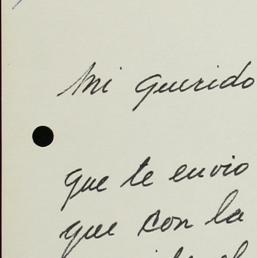 Mi querido
que te envio
que con la